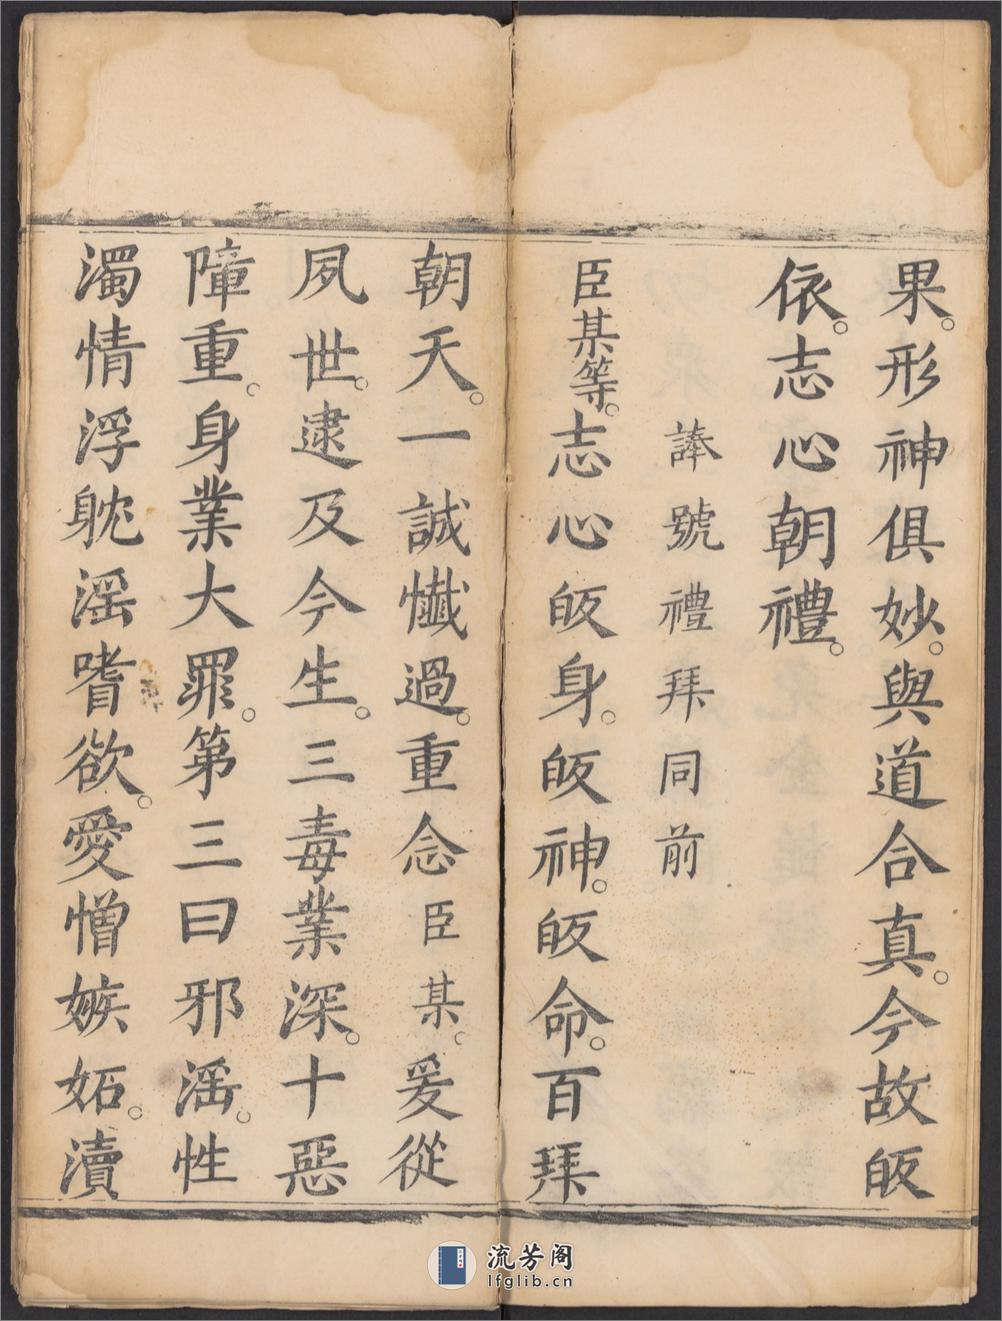 果。形神俱妙。與道合真。今故皈
依。志心朝禮。
諱號禮拜同前
臣某等。志心皈身。皈神。皈命。百拜
朝天。一誠懺過。重念臣某。爰從
夙世。逮及今生。三毒業深。十惡
障重。身業大罪。第三曰邪滛。性
濁情浮躭滛嗜欲。愛憎嫉妬。瀆
流芳阁
lfglib.cn